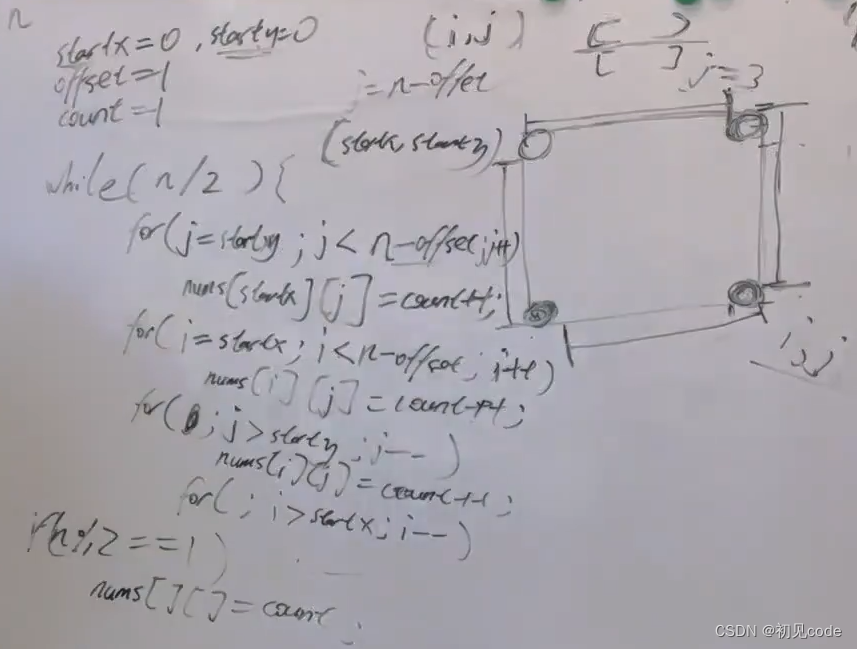 n
startx=0, starty=0
offset=1
count=1
(i,j)
[ )
[ ]
j=3
j=n-offset
(startx, starty)
while(n/2 ){
for(j=starty; j<n-offset; j++)
nums[startx][j]=count++;
for(i=startx; i<n-offset; i++)
nums[i][j]=count++;
for( ; j>starty; j--)
nums[i][j]=count++;
for(; i>startx; i--)
i,j
if(n%2==1)
nums[][]=count;
CSDN @初见code